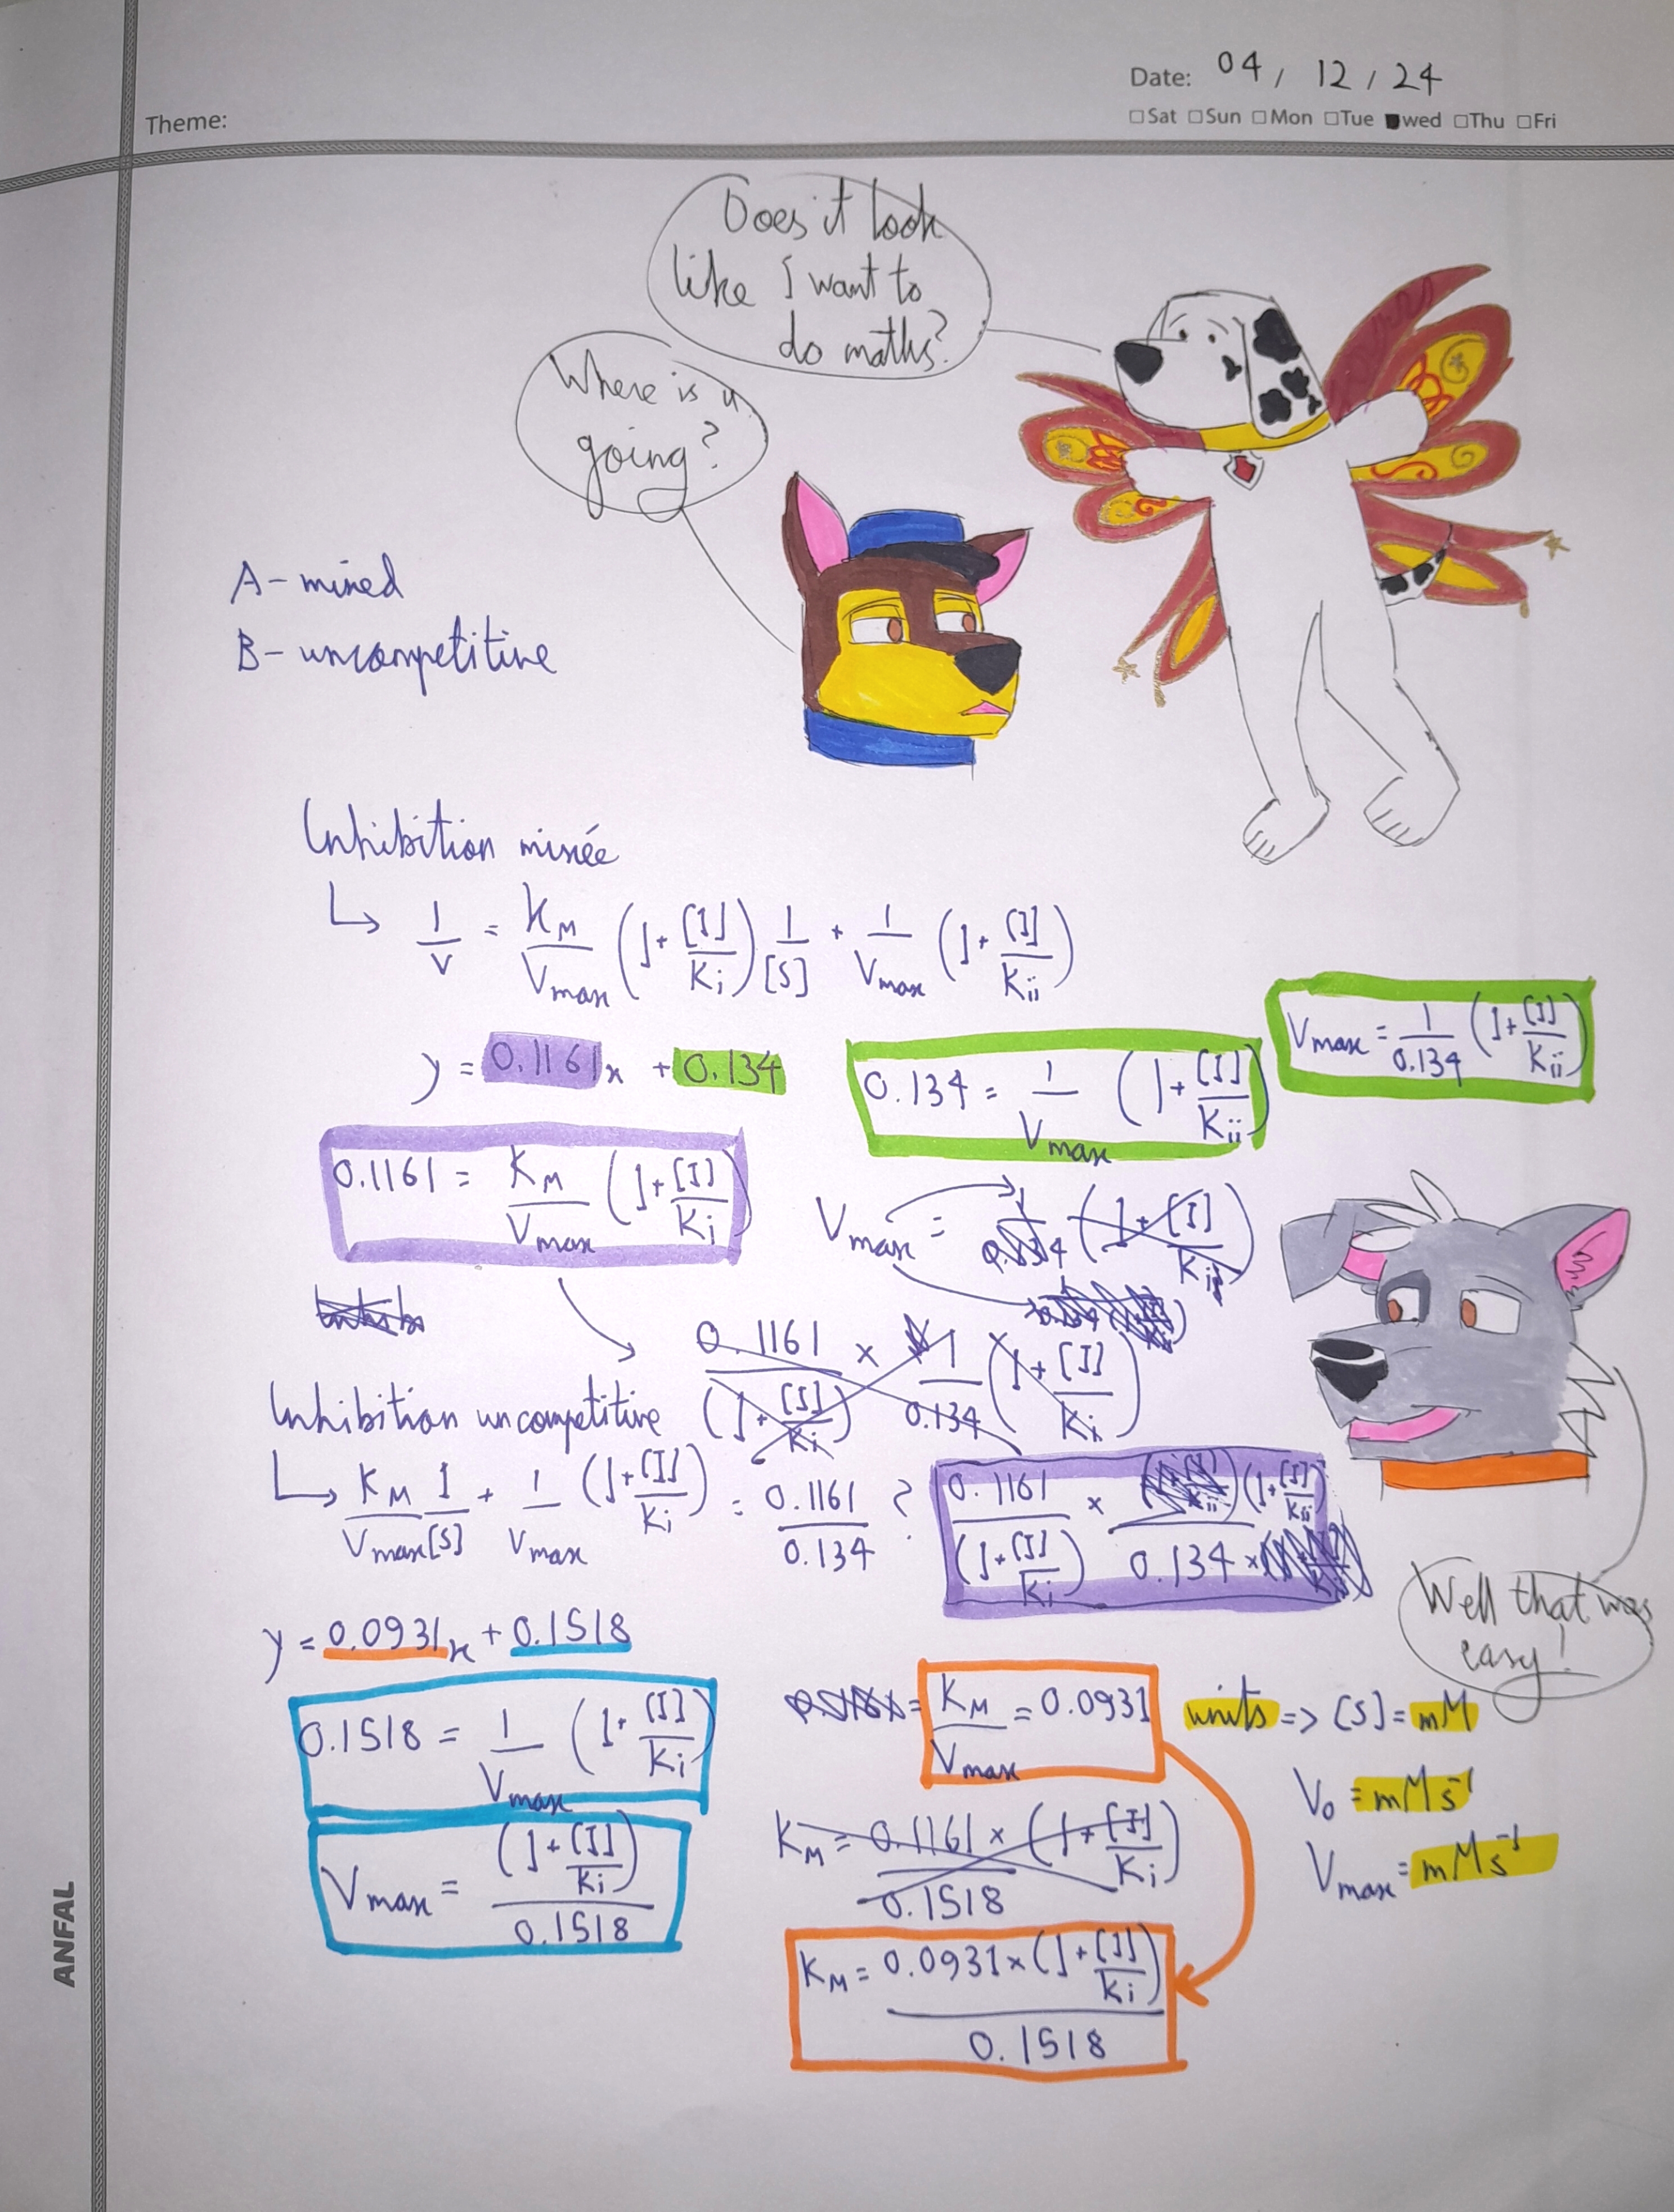 Date: 04 / 12 / 24
Theme:
Sat Sun Mon Tue wed Thu Fri
Does it look
like I want to
do maths?
Where is u
going?
A - mixed
B - uncompetitive
Inhibition mixée
1/v = KM/Vmax (1+[I]/Ki) 1/[S] + 1/Vmax (1+[I]/Kii)
y = 0.1161x + 0.134
0.134 = 1/Vmax (1+[I]/Kii)
Vmax = 1/0.134 (1+[I]/Kii)
0.1161 = KM/Vmax (1+[I]/Ki)
Vmax = 1/0.134 (1+[I]/Kii)
Inhibition uncompetitive
KM/Vmax 1/[S] + 1/Vmax (1+[I]/Ki) = 0.1161/0.134 ?
0.1161/(1+[I]/Ki) × (1+[I]/Kii)/0.134 ×
Well that was
easy!
y = 0.0931x + 0.1518
0.1518 = 1/Vmax (1+[I]/Ki)
KM/Vmax = 0.0931
units => [S] = mM
V0 = mMs-1
Vmax = mMs-1
Vmax = (1+[I]/Ki)/0.1518
KM = 0.1161 × (1+[I]/Ki)/0.1518
KM = 0.0931 × (1+[I]/Ki)/0.1518
ANFAL